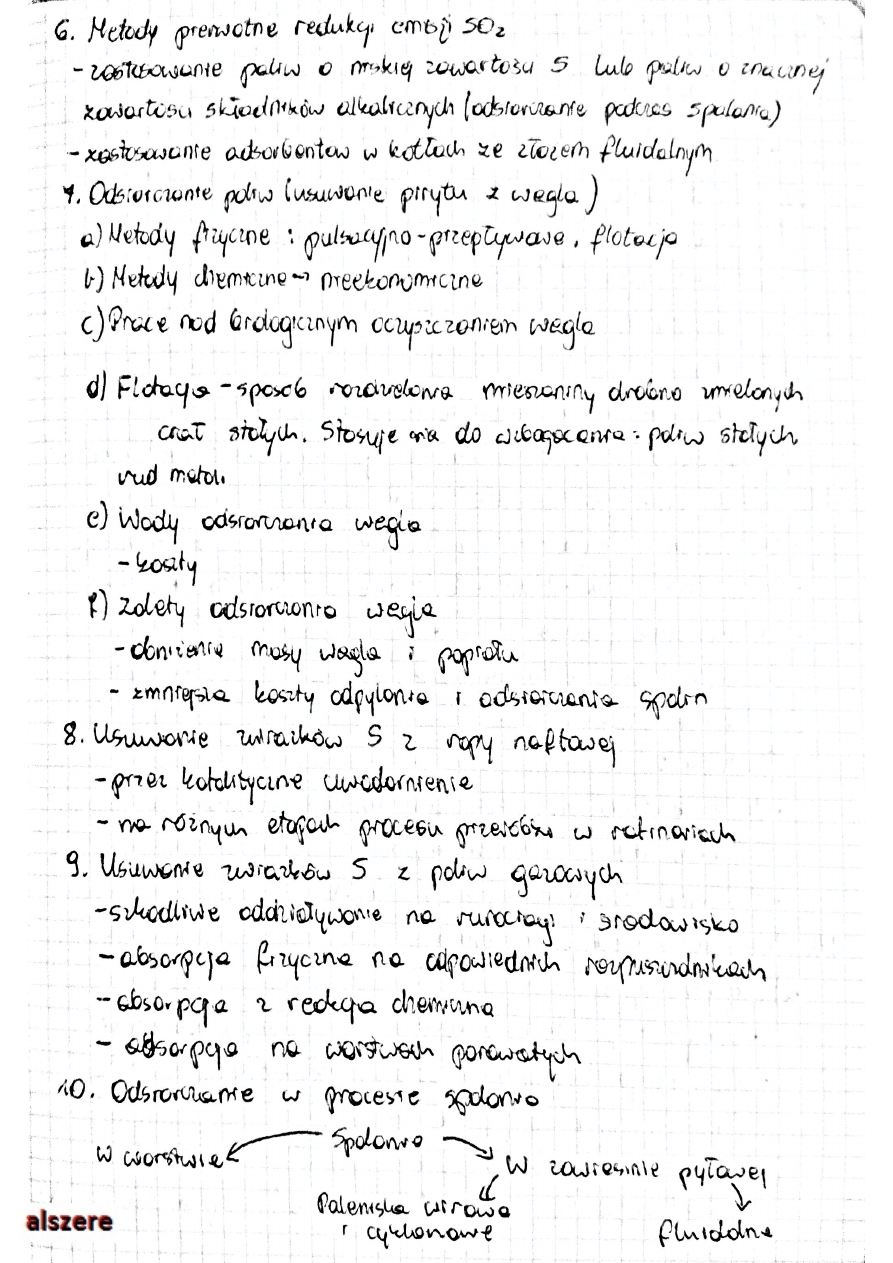 6. Metody pierwotne redukcji emisji SO₂
- zastosowanie paliw o niskiej zawartości S lub paliw o znacznej
zawartości składników alkalicznych (odsiarczanie podczas spalania)
- zastosowanie adsorbentów w kotłach ze złożem fluidalnym
7. Odsiarczanie paliw (usuwanie pirytu z węgla)
a) Metody fizyczne : pulsacyjno-przepływowe, flotacja
b) Metody chemiczne → nieekonomiczne
c) Prace nad biologicznym oczyszczaniem węgla
d) Flotacja - sposób rozdzielania mieszaniny drobno zmielonych
ciał stałych. Stosuje się do wzbogacania: paliw stałych
rud metali
e) Wady odsiarczania węgla
- koszty
f) Zalety odsiarczania węgla
- obniżenie masy węgla i popiołu
- zmniejsza koszty odpylania i odsiarczania spalin
8. Usuwanie związków S z ropy naftowej
- przez katalityczne uwodornienie
- na różnych etapach procesu przeróbki w rafineriach
9. Usuwanie związków S z paliw gazowych
- szkodliwe oddziaływanie na rurociągi i środowisko
- absorpcja fizyczna na odpowiednich rozpuszczalnikach
- absorpcja z reakcją chemiczną
- adsorpcja na warstwach porowatych
10. Odsiarczanie w procesie spalania
Spalanie
W warstwie
W zawiesinie pyłowej
Paleniska wirowe
i cyklonowe
fluidalne
alszere